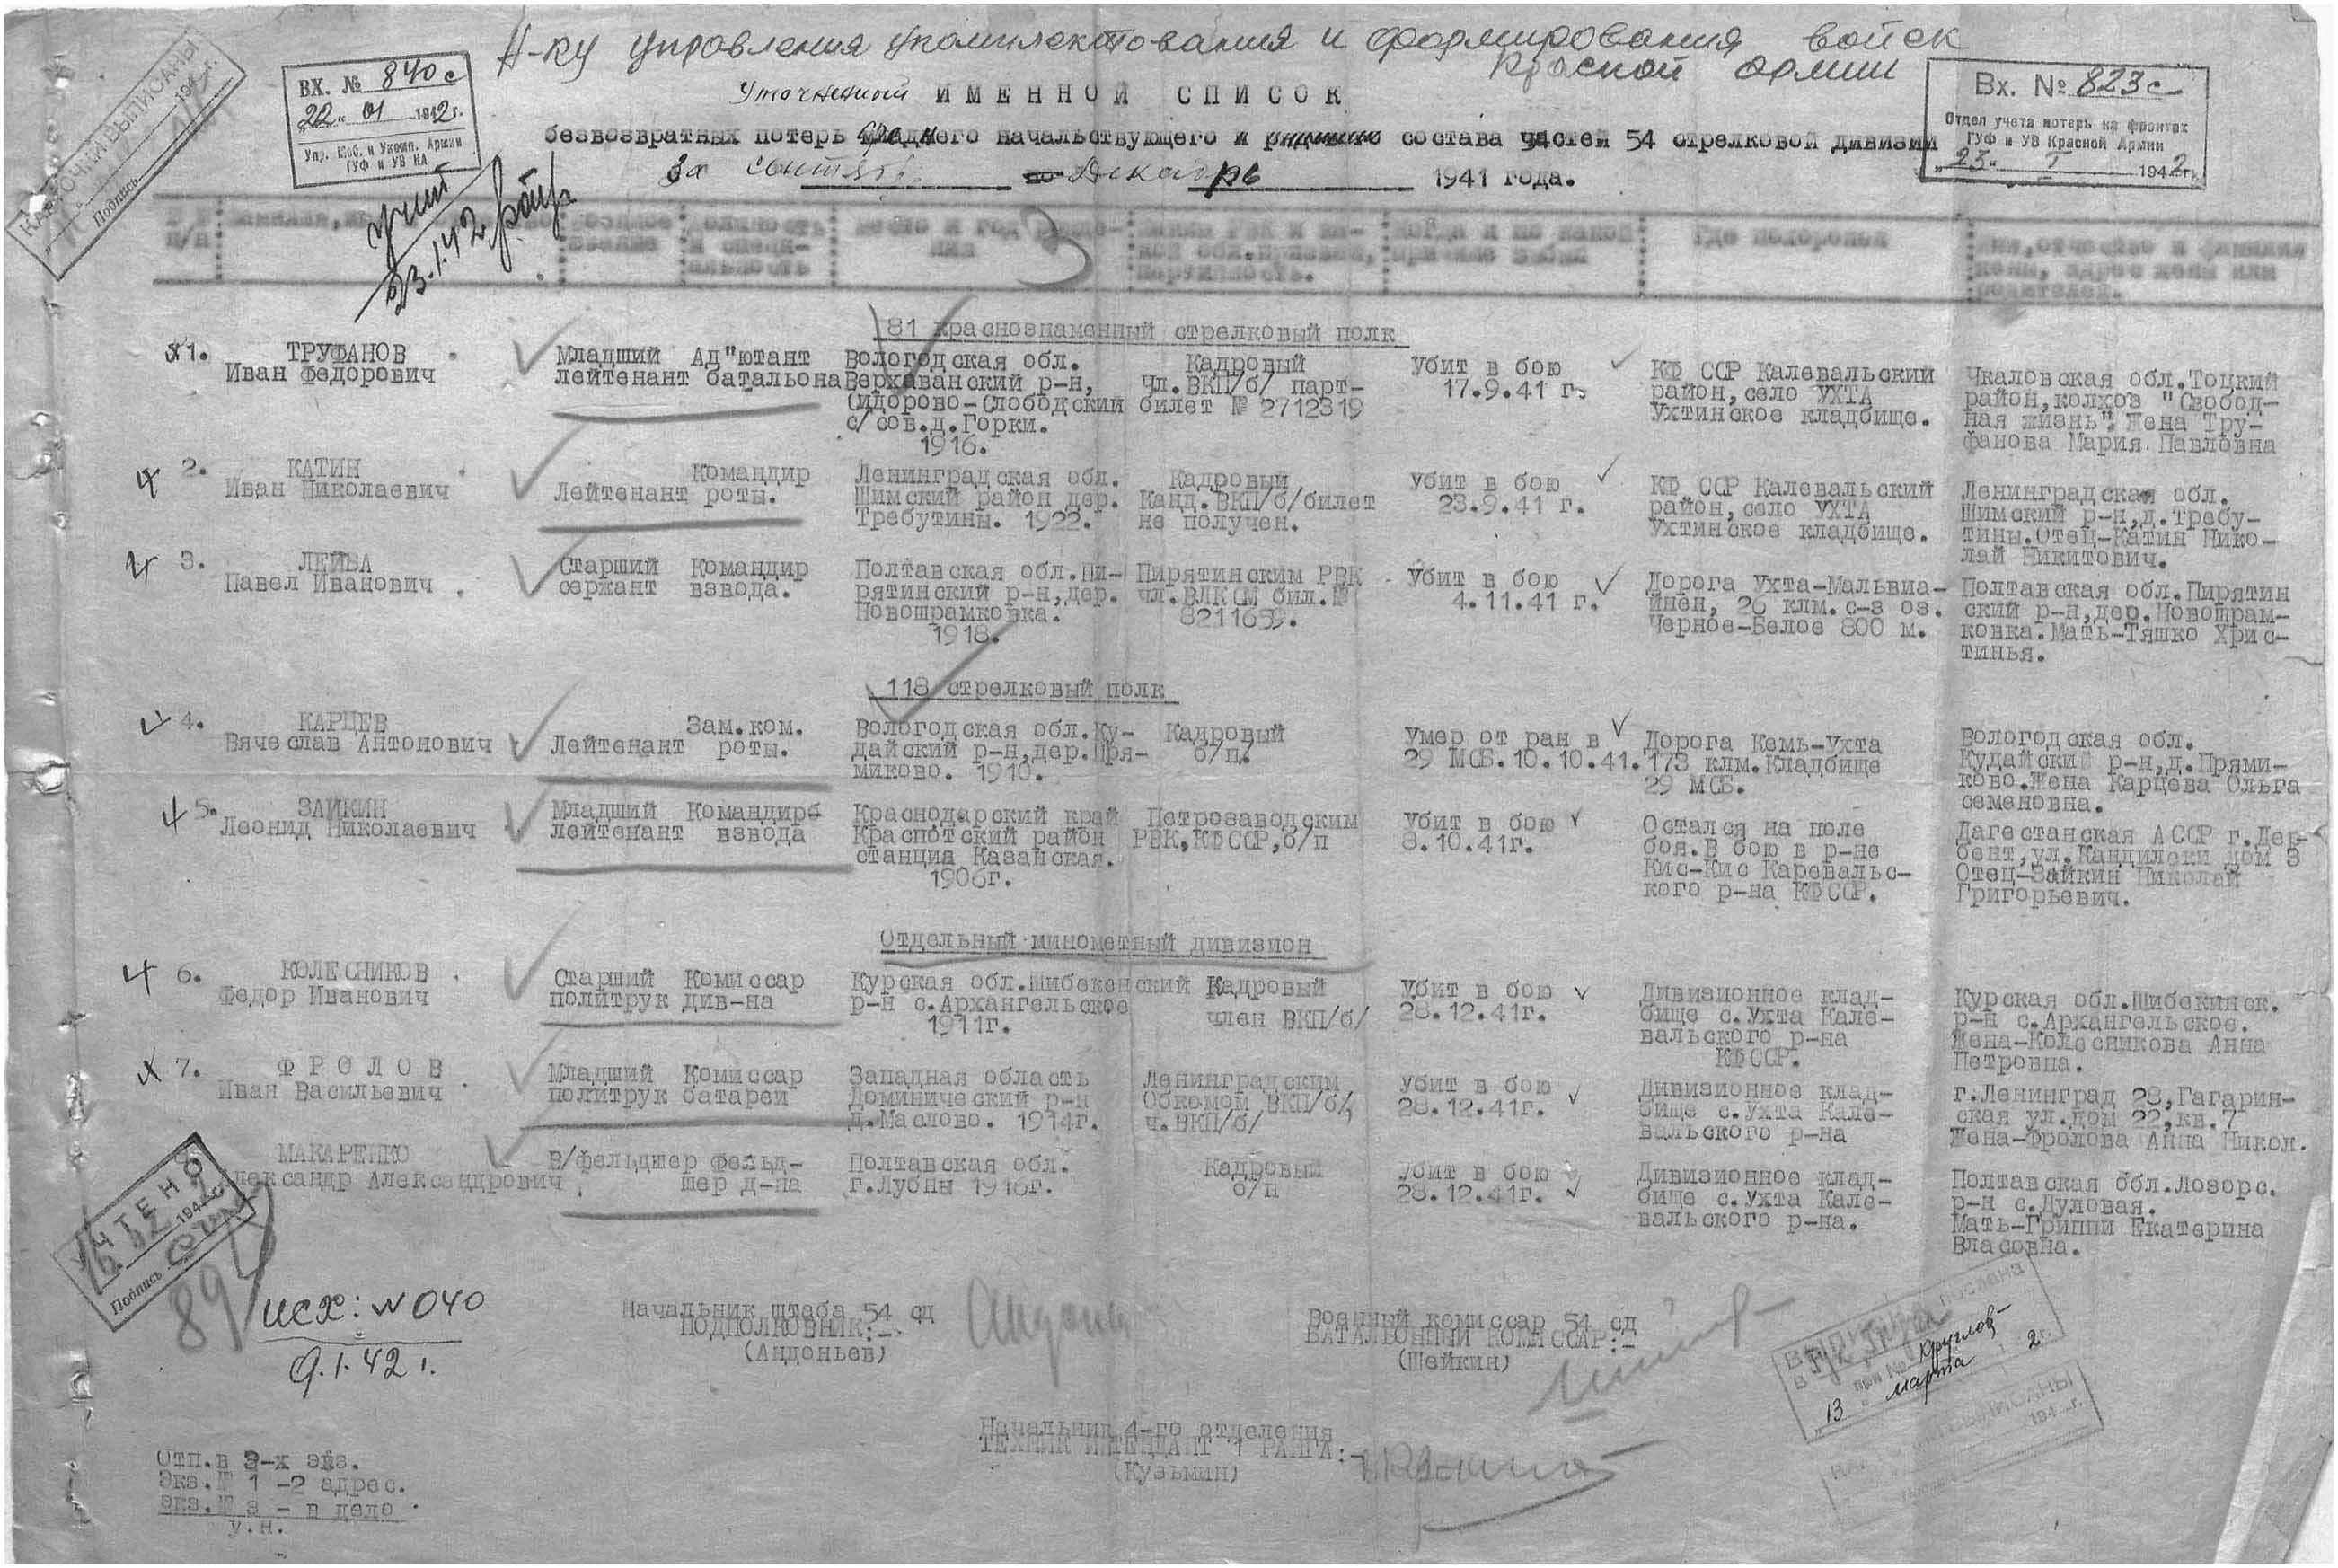 Н-ку управления укомплектования и формирования войск
Красной армии
КАРТОЧКИ ВЫПИСАНЫ
194 г.
Подпись
ВХ. № 840с
22 " 01 1942г.
Упр. Моб. и Укомп. Армии
ГУФ и УВ КА
Вх. № 823с
Отдел учета потерь на фронтах
ГУФ и УВ Красной Армии
„23" I 1942г.
Уточненный ИМЕННОЙ СПИСОК
безвозвратных потерь среднего начальствующего и состава частей 54 стрелковой дивизии
За сентябрь по декабрь 1941 года.
23.1.42
п/п
звание
Должность и специальность
Место и год рождения
Каким РВК и какой обл. призван, партийность.
Когда и по какой причине выбыл
Где похоронен
Имя, отчество и фамилия жены, адрес жены или родителей.
81 краснознаменный стрелковый полк
1. ТРУФАНОВ Младший Ад"ютант Вологодская обл. Кадровый Убит в бою КФ ССР Калевальский Чкаловская обл.Тоцкий
Иван Федорович лейтенант батальона Верхаванский р-н, Чл.ВКП/б/ парт- 17.9.41 г. район,село УХТА район,колхоз "Свобод-
Сидорово-Слободский билет № 2712319 Ухтинское кладбище. ная жизнь". Жена Тру-
с/сов.д.Горки. фанова Мария Павловна
1916.
2. КАТИН Командир Ленинградская обл. Кадровый Убит в бою КФ ССР Калевальский Ленинградская обл.
Иван Николаевич Лейтенант роты. Шимский район дер. Канд.ВКП/б/билет 23.9.41 г. район,село УХТА Шимский р-н,д.Требу-
Требутины. 1922. не получен. Ухтинское кладбище. тины.Отец-Катин Нико-
лай Никитович.
3. ЛЕЙВА Старший Командир Полтавская обл.Пи- Пирятинским РВК Убит в бою Дорога Ухта-Мальвиа- Полтавская обл.Пирятин
Павел Иванович сержант взвода. рятинский р-н,дер. чл.ВЛКСМ бил.№ 4.11.41 г. йнен, 26 клм.с-з оз. ский р-н,дер.Новошрам-
Новошрамковка. 8211659. Черное-Белое 800 м. ковка.Мать-Тяшко Хрис-
1918. тинья.
118 стрелковый полк
4. КАРЦЕВ Зам.ком. Вологодская обл.Ку- Кадровый Умер от ран в Дорога Кемь-Ухта Вологодская обл.
Вячеслав Антонович Лейтенант роты. дайский р-н,дер.Пря- б/п. 29 МСБ.10.10.41. 173 клм.Кладбище Кудайский р-н,д.Прями-
миково. 1910. 29 МСБ. ково.Жена Карцева Ольга
семеновна.
5. ЗАЙКИН Младший Командир Краснодарский край Петрозаводским Убит в бою Остался на поле Дагестанская АССР г.Дер-
Леонид Николаевич лейтенант взвода Краспотский район РВК,КФССР,б/п 8.10.41г. боя.В бою в р-не бент,ул.Кандилаки дом 3
станция Казанская. Кис-Кис Каревальс- Отец-Зайкин Николай
1906г. кого р-на КФССР. Григорьевич.
Отдельный минометный дивизион
6. КОЛЕСНИКОВ Старший Комиссар Курская обл.Шибекенский Кадровый Убит в бою Дивизионное клад- Курская обл.Шибекинск.
Федор Иванович политрук див-на р-н с.Архангельское член ВКП/б/ 28.12.41г. бище с.Ухта Кале- р-н с.Архангельское.
1911г. вальского р-на Жена-Колесникова Анна
КФССР. Петровна.
7. ФРОЛОВ Младший Комиссар Западная область Ленинградским Убит в бою Дивизионное клад- г.Ленинград 28,Гагарин-
Иван Васильевич политрук батареи Доминический р-н Обкомом ВКП/б/, 28.12.41г. бище с.Ухта Кале- ская ул.дом 22,кв.7
д.Маслово. 1914г. ч.ВКП/б/ вальского р-на Жена-Фролова Анна Никол.
МАКАРЕНКО В/фельдшер Фельд- Полтавская обл. Кадровый Убит в бою Дивизионное клад- Полтавская обл.Лозорс.
лександр Александрович шер д-на г.Лубны 1916г. б/п 28.12.41г. бище с.Ухта Кале- р-н с.Дуловая.
вальского р-на. Мать-Гриппи Екатерина
Власовна.
УЧТЕНО
194 г.
Подпись
89
исх: №040
9.1.42 г.
Начальник штаба 54 сд
ПОДПОЛКОВНИК:-
(Андоньев)
Военный комиссар 54 сд
БАТАЛЬОННЫЙ КОМИССАР:-
(Шейкин)
послана
при №
13 " марта 2г.
ВЫПИСАНЫ
194 г.
Начальник 4-го отделения
ТЕХНИК ИНТЕНДАНТ 1 РАНГА:-
(Кузьмин)
Отп.в 3-х экз.
Экз.№ 1 -2 адрес.
Экз.№ 3 - в дело
у.н.